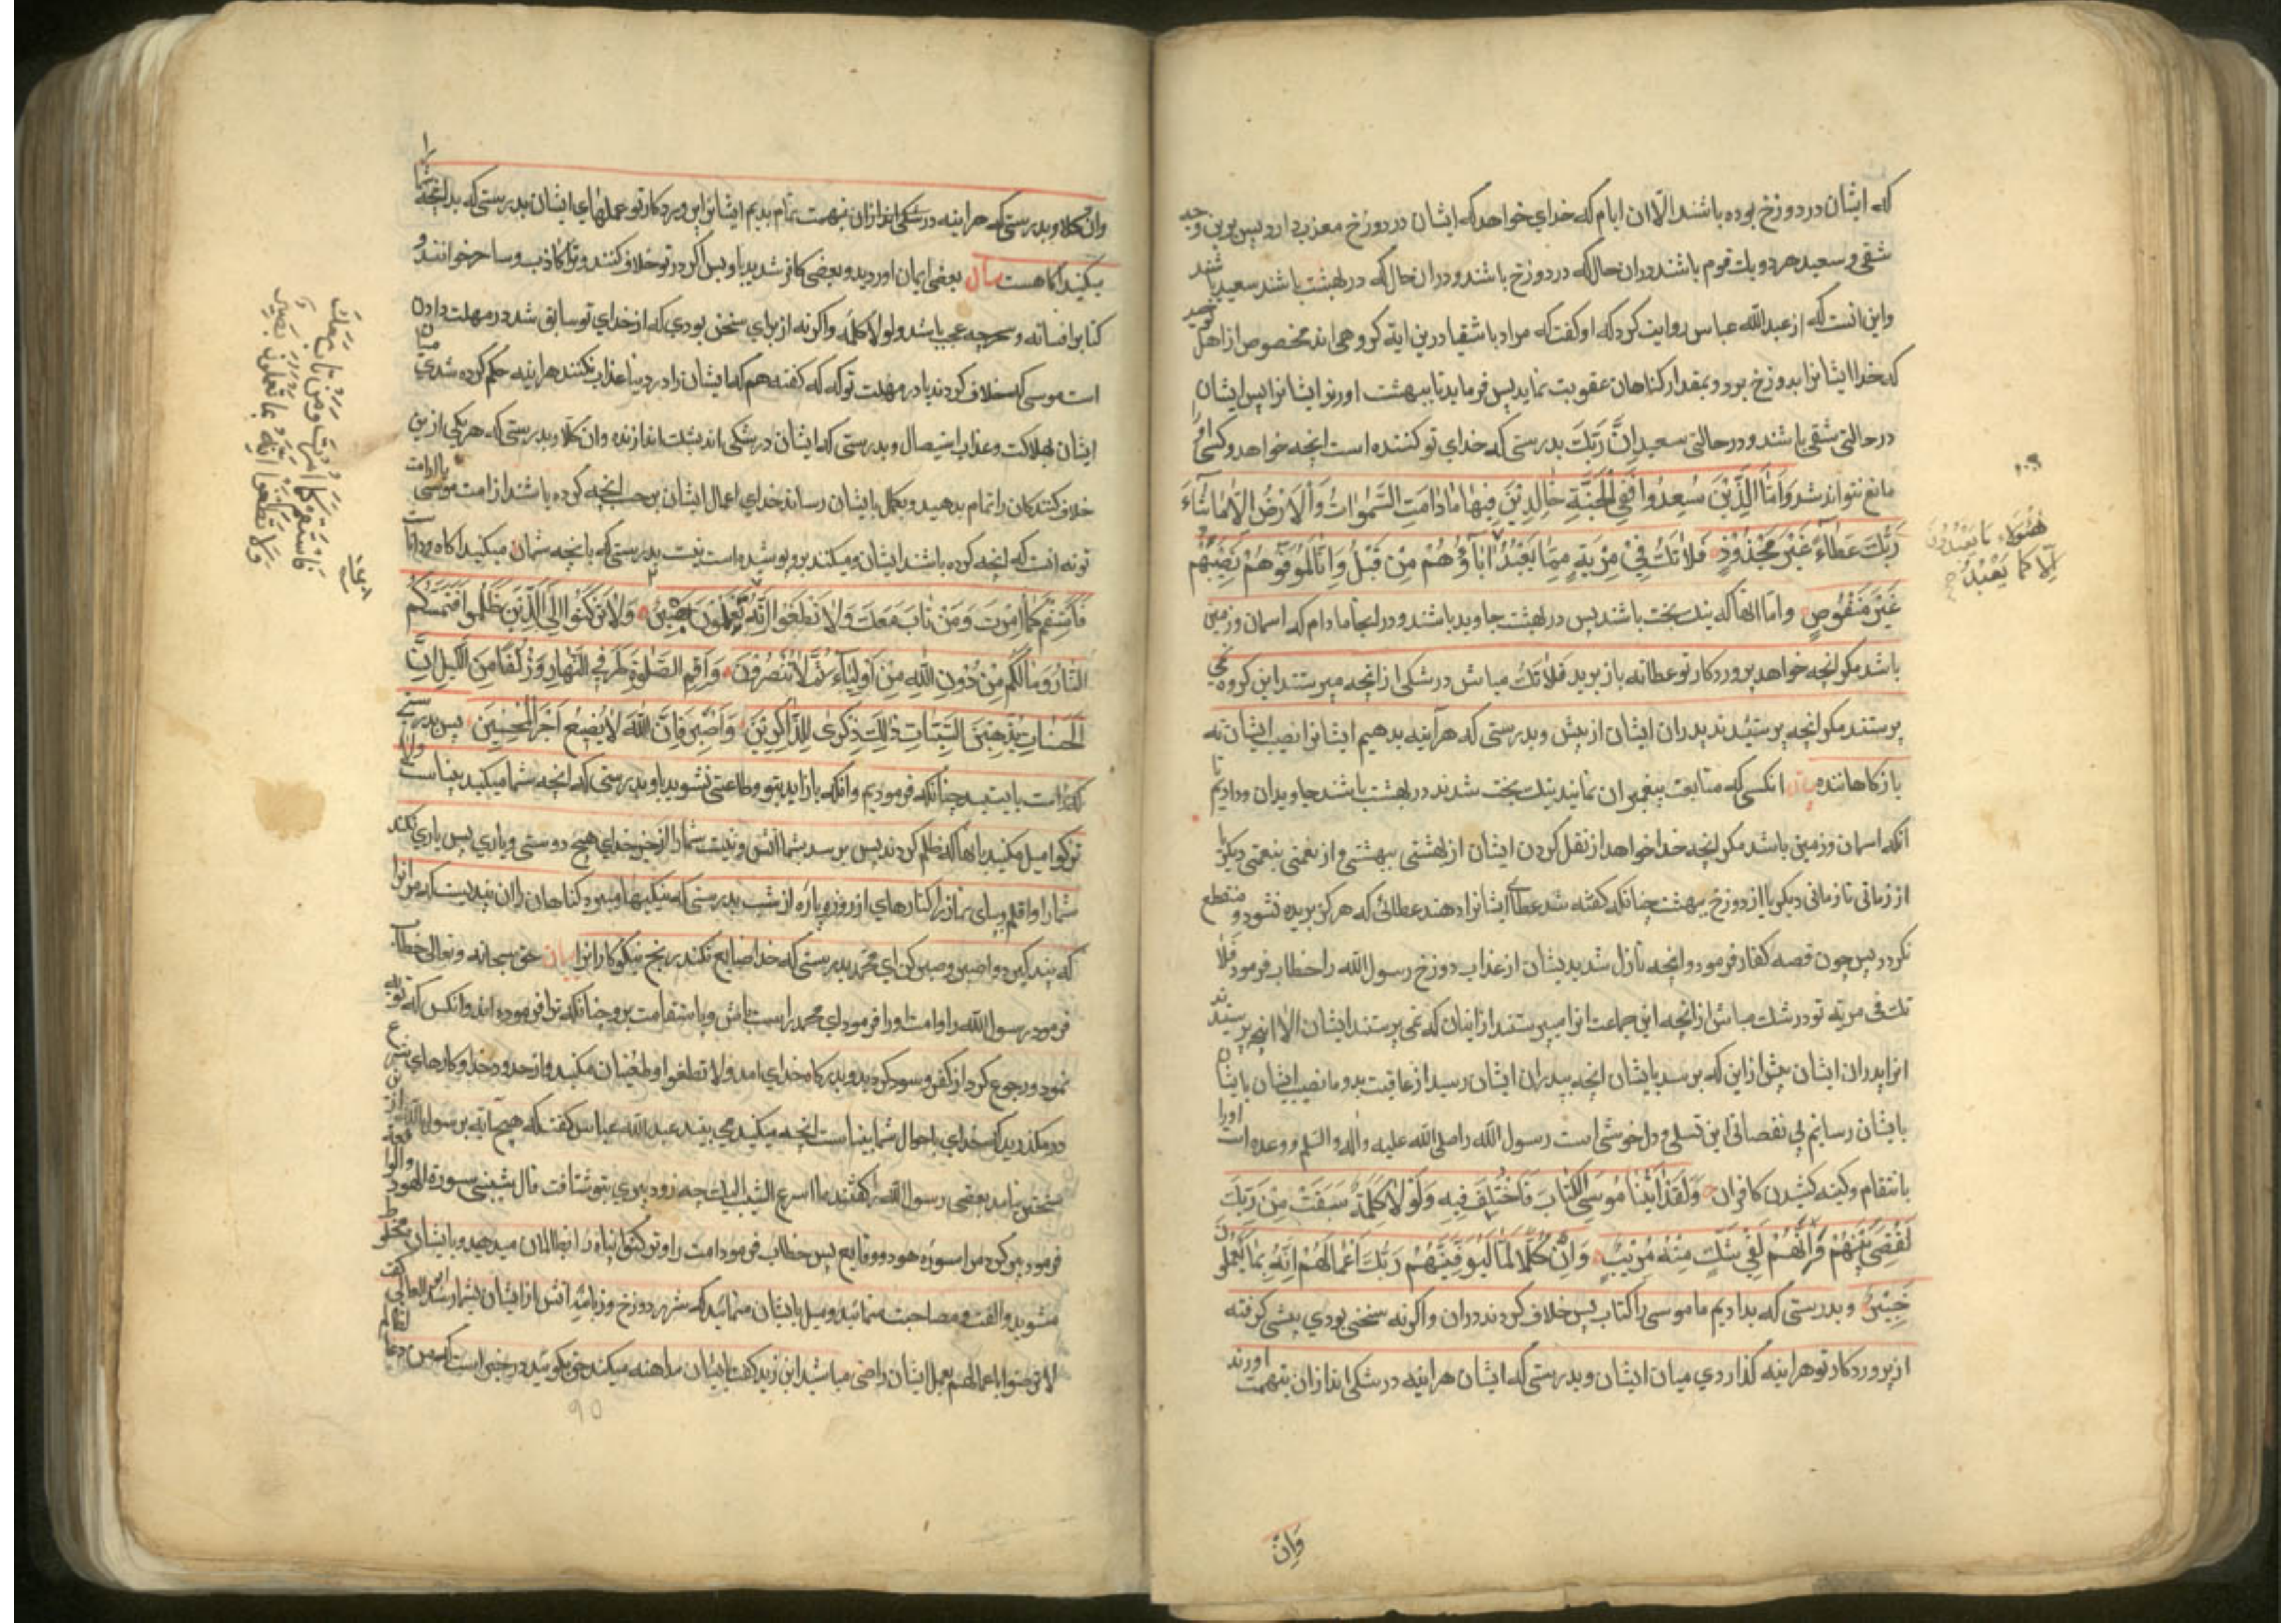 که ایشان در دوزخ بوده باشند الا ان ایام که خدای خواهد که ایشان در دوزخ معذب دارد پس بدین وجه
شقی و سعید هر دو یک قوم باشند دران حال که در دوزخ باشند و دران حال که در بهشت باشند سعید باشند
واین انست که از عبدالله عباس روایت کرد که او کفت که مراد باشقیا درین ایه کروهی اند مخصوص از اهل توحید
که خدا ایشانرا بدوزخ برد و بمقدار کناهان عقوبت نماید پس فرماید تا ببهشت اورند ایشانرا پس ایشان
در حالتی شقی باشند و در حالتی سعید اِنَّ رَبَّكَ بدرستی که خدای تو کننده است انچه خواهد و کسی اورا
مانع نتواند شد وَاَمَّا الَّذِيْنَ سُعِدُوا فَفِي الْجَنَّةِ خَالِدِيْنَ فِيهَا مَادَامَتِ السَّمٰوٰاتُ وَالْاَرْضُ اِلَّا مَا شَآءَ
رَبُّكَ عَطَآءً غَيْرَ مَجْذُوْذٍ فَلَا تَكُ فِيْ مِرْيَةٍ مِمَّا يَعْبُدُ اٰبَاؤُهُمْ مِنْ قَبْلُ وَاِنَّا لَمُوَفُّوهُمْ نَصِيْبَهُمْ
هٰؤُلَاءِ مَا يَعْبُدُوْنَ
اِلَّا كَمَا يَعْبُدُ
غَيْرَ مَنْقُوصٍ و اما انها که نیک بخت باشند پس در بهشت جاوید باشند و در انجا مادام که اسمان و زمین
باشد مکر انچه خواهد پروردکار تو عطا نه باز برید فَلَا تَكُ مباش در شکی از انچه میپرستند این کروه نمی
پرستند مکر انچه پرستیدند پدران ایشان از پیش و بدرستی که هرآینه بدهیم ایشانرا نصیب ایشان نه
باز کاهاننده بیان انکسی که متابعت پیغمبران نمایند نیک بخت شدند در بهشت باشند جاویدان و دادیم تا
انکه اسمان و زمین باشد مکر انچه خدا خواهد از نقل کردن ایشان از بهشتی ببهشتی و از نعمتی بنعمتی دیکر یا
از زمانی تا زمانی دیکر یا از دوزخ ببهشت چنانکه کفته شد عطاء ایشانرا دهند عطائی که هرکز بریده نشود و منقطع
نکردد پس چون قصه کفار فرمود و انچه نازل شد بدیشان از عذاب دوزخ رسول الله را خطاب فرمود فلا
تك فی مریة تو در شك مباش از انچه این جماعت انرا میپرستند از اینان که نمی پرستند ایشان الا انچه پرستیدند
انرا پدران ایشان پیش از این که برسد بایشان انچه بپدران ایشان رسید از عاقبت بد و ما نصیب ایشان بایشان
بایشان رسانیم بی نقصانی این تسلی و دل خوشی است رسول الله را صلی الله علیه واله والسلم و وعده است اورا
بانتقام و کینه کشیدن کافران وَلَقَدْ اٰتَيْنَا مُوسَى الْكِتَابَ فَاخْتُلِفَ فِيهِ وَلَوْلَا كَلِمَةٌ سَبَقَتْ مِنْ رَبِّكَ
لَقُضِيَ بَيْنَهُمْ وَاِنَّهُمْ لَفِي شَكٍّ مِنْهُ مُرِيْبٍ وَاِنَّ كُلًّا لَمَّا لَيُوَفِّيَنَّهُمْ رَبُّكَ اَعْمَالَهُمْ اِنَّهُ بِمَا يَعْمَلُوْنَ
خَبِيْرٌ و بدرستی که بدادیم ما موسی را کتاب پس خلاف کردند دران و اکرنه سخنی بودی پیشی کرفته
از پروردکار تو هراینه کذاردی میان ایشان و بدرستی که ایشان هراینه در شکی اند ازان بتهمت اورند
وَاِنَّ
وان کلا و بدرستی که هراینه در شکی اند ازان بتهمت تمام بدیم ایشانرا پروردکار تو عملهای ایشان بدرستی که بدانچه شما
میکنید اکاهست بیان بعضی ایمان اوردید و بعضی کافر شدید یا و پس اکر در تو خلاف کنند و ترا کاذب و ساحر خوانند و
کتابرا افسانه و سحر چه عجب باشد ولولا کلمه و اکرنه از برای سخنی بودی که از خدای تو سابق شد در مهلت دادن
است موسی که خلاف کردند یا در مهلت تو که که کفته هم که ایشان را در دنیا عذاب نکنند هراینه حکم کرده شدی میان
ایشان بهلاکت و عذاب استیصال و بدرستی که ایشان در شکی اند بشك اندازنده وان کلا و بدرستی که هر یکی ازین
خلاف کنندکان را تمام بدهید و بکمال بایشان رساند خدای اعمال ایشان بر حسب انچه کرده باشد از امت موسی یا از امت
تو نه انست که انچه کرده باشند ایشان و میکند برو پوشیده است نیست بدرستی که بانچه شمان میکنید اکاه و دانا است
فَاسْتَقِمْ كَمَا اُمِرْتَ وَمَنْ تَابَ مَعَكَ وَلَا تَطْغَوْا اِنَّهُ تَعْمَلُوْنَ بَصِيْرٌ وَلَا تَرْكَنُوا اِلَى الَّذِيْنَ ظَلَمُوا فَتَمَسَّكُمُ
النَّارُ وَمَا لَكُمْ مِنْ دُوْنِ اللّٰهِ مِنْ اَوْلِيَآءَ ثُمَّ لَا تُنْصَرُوْنَ وَاَقِمِ الصَّلٰوةَ طَرَفَيِ النَّهَارِ وَزُلَفًا مِنَ اللَّيْلِ اِنَّ
الْحَسَنَاتِ يُذْهِبْنَ السَّيِّئَاتِ ذٰلِكَ ذِكْرٰى لِلذَّاكِرِيْنَ وَاصْبِرْ فَاِنَّ اللّٰهَ لَا يُضِيْعُ اَجْرَ الْمُحْسِنِيْنَ پس بدرستی
که راست بایستید چنانکه فرمودیم وانکه باز اید بتو وطاعتی نشوید یا و بدرستی که انچه شما میکنید بیناست ولا
ترکنوا میل مکنید بانهاکه ظلم کردند پس برسد بشما اتش و نیست شما را از جز خدای هیچ دوستی و یاری پس یاری نکند
شما را واقم و بپای نماز را کنارهای از روز و پاره از شب بدرستی که نیکیها میبرد کناهان را ان پندیست که مر انرا
که پند کیرد واصبر و صبر کن ای محمد بدرستی که خدا ضایع نکند رنج نیکوکارانرا بیان حق سبحانه و تعالی خطاب
فرمود رسول الله را و امت اورا فرمود ای محمد راست باش و باستقامت برو چنانکه ترا فرموده اند وانکس که توبه
نمود و رجوع کرد از کفر و بدرکاه خدای امد ولا تطغوا و طغیان مکنید و از حدود خدا و کارهای شرع
در مکذرید که خدای باحوال شما بیناست انچه میکنید می بیند عبدالله عباس کفت که هیچ ایه بر رسول الله از این
سختر نیامد بعضی رسول الله را کفتند ما اسرع الشیب الیك چه زود پیری بتو شتافت قال شیبتنی سورة الهود والواقعة
فرمود پیر کرد مرا سوره هود و وقایع پس خطاب فرمود امت را و ترکنوا پناه را بظالمان میدهید و بایشان مخلوط
مشوید و الفت و مصاحبت منمائید و میل بایشان منمائید که شرر دوزخ و زبانیه اتش باز ایشان بشما رسد ابن العالی کفت
لا ترضوا باعمالهم بعمل ایشان راضی مباشید ابن زید کفت بایشان مداهنه میکند حق بکوئید در خبر است که من دعا لظالم
فَاسْتَقِمْ كَمَا اُمِرْتَ وَمَنْ تَابَ مَعَكَ
وَلَا تَطْغَوْا اِنَّهُ بِمَا تَعْمَلُوْنَ بَصِيْرٌ
90